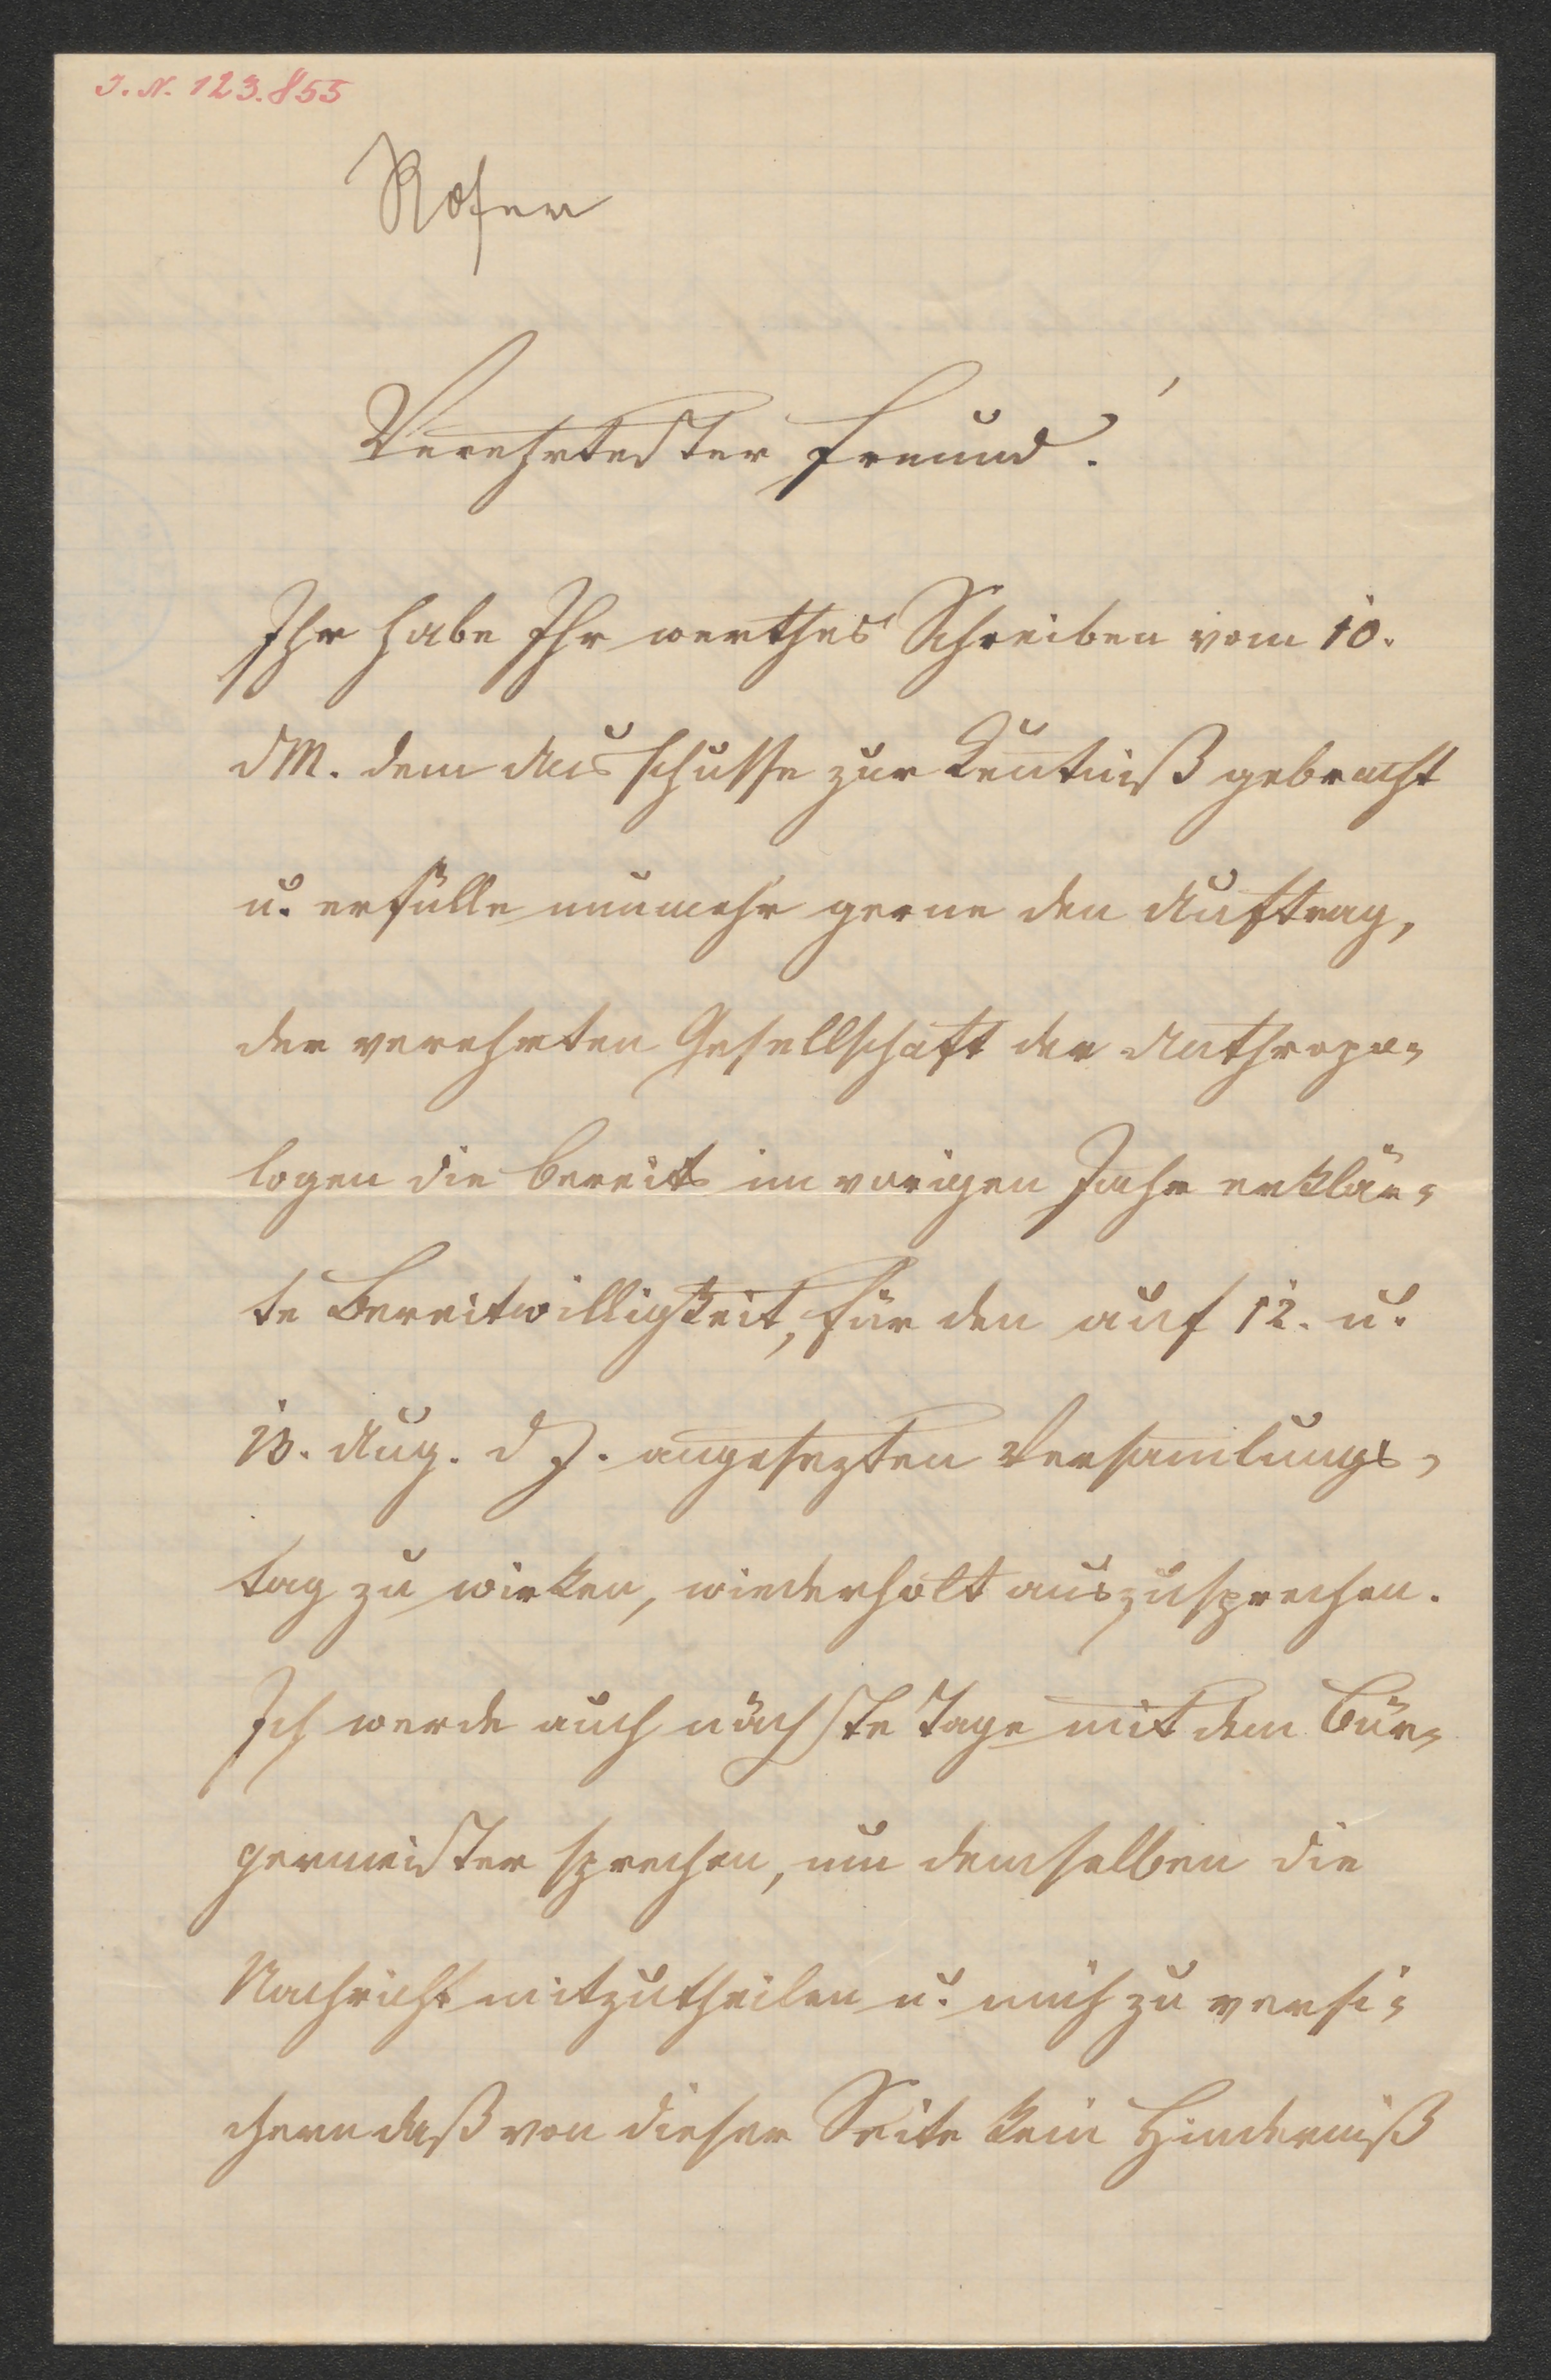 I. N. 123.855
Rosen
Verehrtester Freund!
Ihr habe Ihr werthes Schreiben vom 10.
dM. dem Ausschusse zur Kentniß gebracht
u. erfülle nunmehr gerne den Auftrag,
der verehrten Gesellschaft der Anthropo-
logen die bereits im vorigen Jahr erklär-
te Bereitwilligkeit, für den auf 12. u.
13. Aug. d J. angesezten Versamlungs-
tag zu wirken, wiederholt auszusprechen.
Ich werde auch nächste Tage mit dem Bür-
germeister sprechen, um demselben die
Nachricht mitzutheilen u. mich zu versi-
chern daß von dieser Seite kein Hinderniß